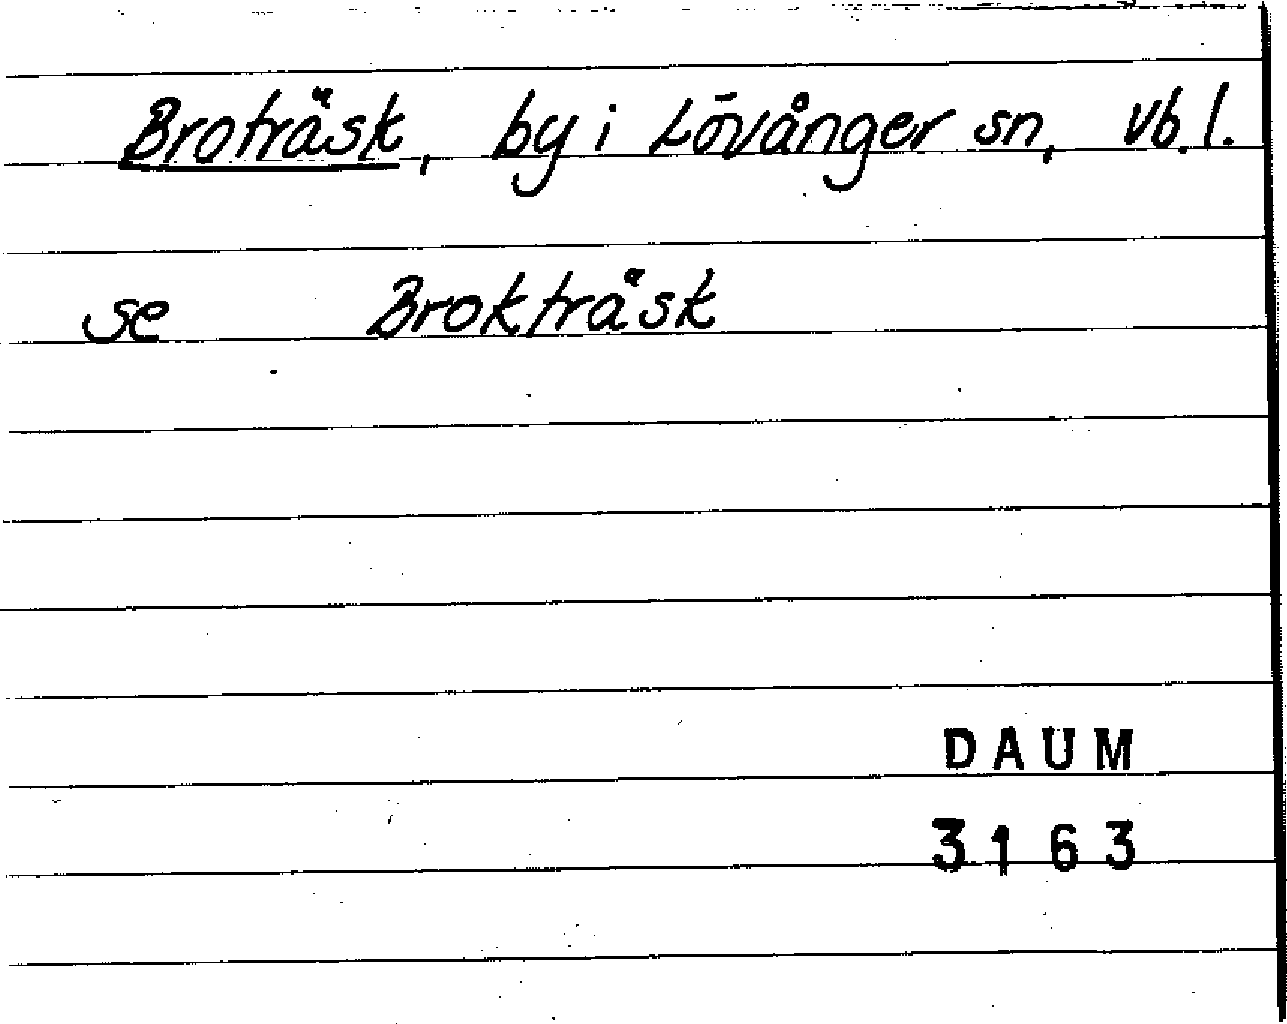 Broträsk, by i Lövånger sn, Vb. l.
se Brokträsk
DAUM
3163